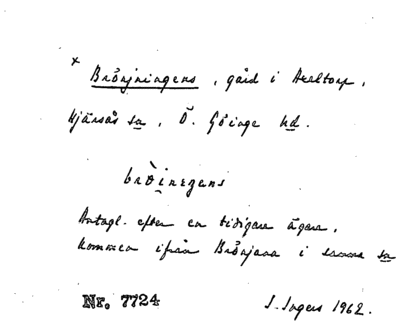 × Brönjningens, gård i Axeltorp,
Hjärsås sn, Ö. Göinge hd.
bröinegens
Antagl. efter en tidigare ägare,
kommen ifrån Brönjana i samma sn
Nr. 7724 I. Ingers 1962.